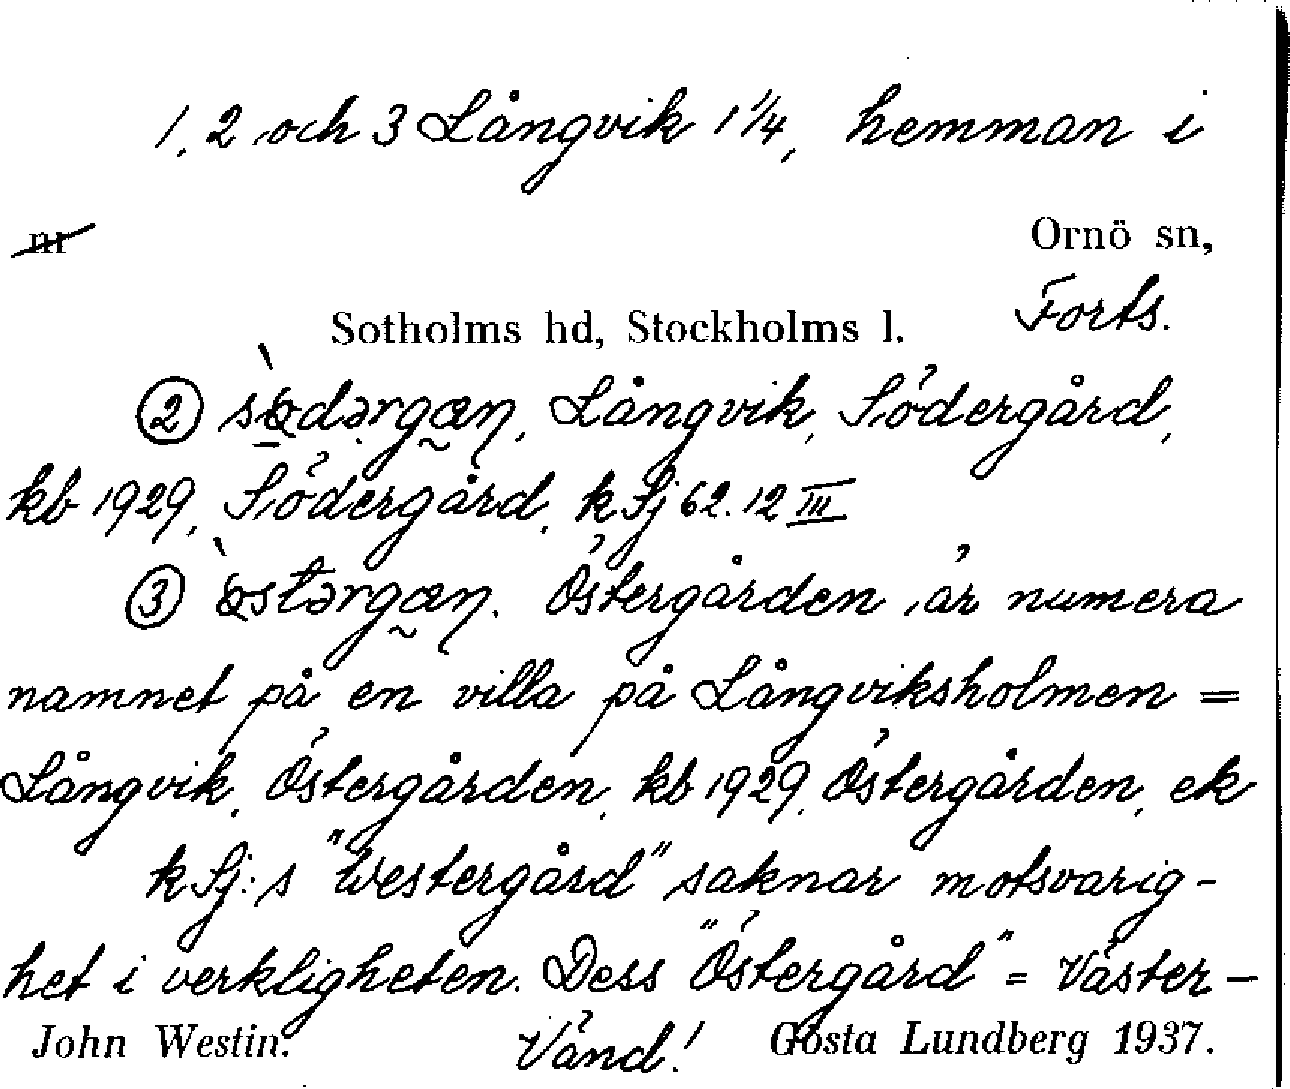 1, 2 och 3 Långvik 1 1/4, hemman i
nr
Ornö sn,
Sotholms hd, Stockholms l.
Forts.
② Långvik, Södergård,
kb 1929, Södergård, k Sj 62. 12 III
③ Östergården är numera
namnet på en villa på Långviksholmen =
Långvik, Östergården, kb 1929, Östergården, ek
k Sj:s "Westergård" saknar motsvarig-
het i verkligheten. Dess "Östergård" = Väster-
John Westin. Vänd! Gösta Lundberg 1937.